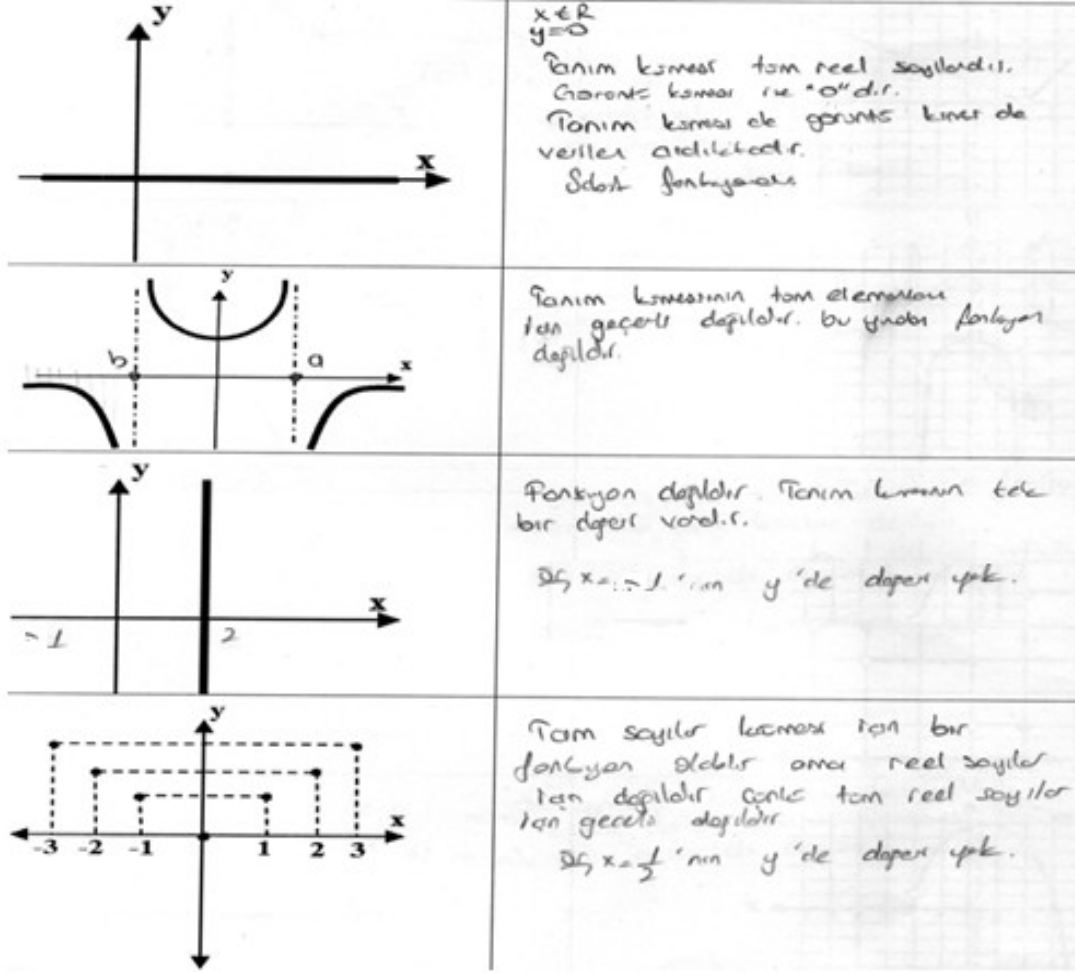 y
x
x ∈ R
y=0
Tanım kümesi tüm reel sayılardır.
Görüntü kümesi ise "0" dır.
Tanım kümesi de görüntü de
veriler
Sabit fonksiyondur
y
b
a
x
Tanım kümesinin tüm elemanları
için geçerli değildir. bu yüzden fonksiyon
değildir.
y
x
-1
2
Fonksiyon değildir. Tanım tek
bir değeri vardır.
Ör, x=-1 'in y 'de değeri yok.
y
x
-3 -2 -1 1 2 3
Tam sayılar kümesi için bir
fonksiyon olabilir ama reel sayılar
için değildir çünkü tüm reel sayılar
için geçerli değildir
Ör, x=1/2 'nin y 'de değeri yok.